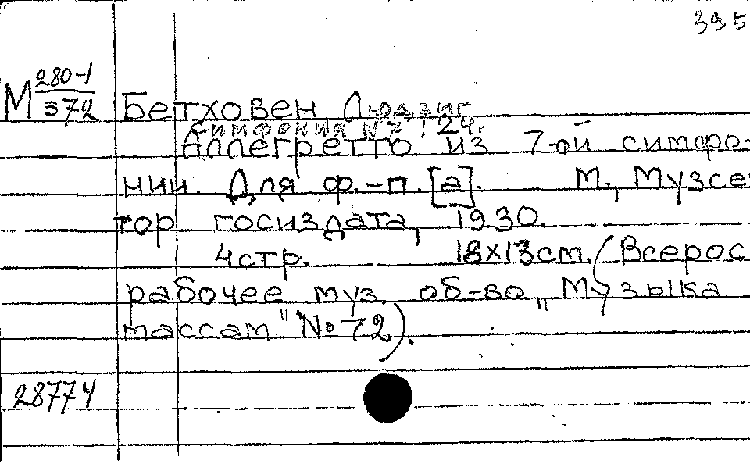 395
М 280-1
372
Бетховен Людвиг
Симфония № 7, 2 ч.
Аллегретто из 7-ой симфо-
нии. Для ф.-п. [а]. М., Музсек
тор госиздата, 1930.
4стр. 18х13см. (Всерос
рабочее муз. об-во „Музыка
массам" № 72).
28774